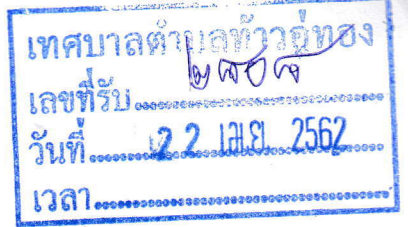 เทศบาลตำบลท้าวอู่ทอง
เลขที่รับ
วันที่ 22 เม.ย. 2562
เวลา